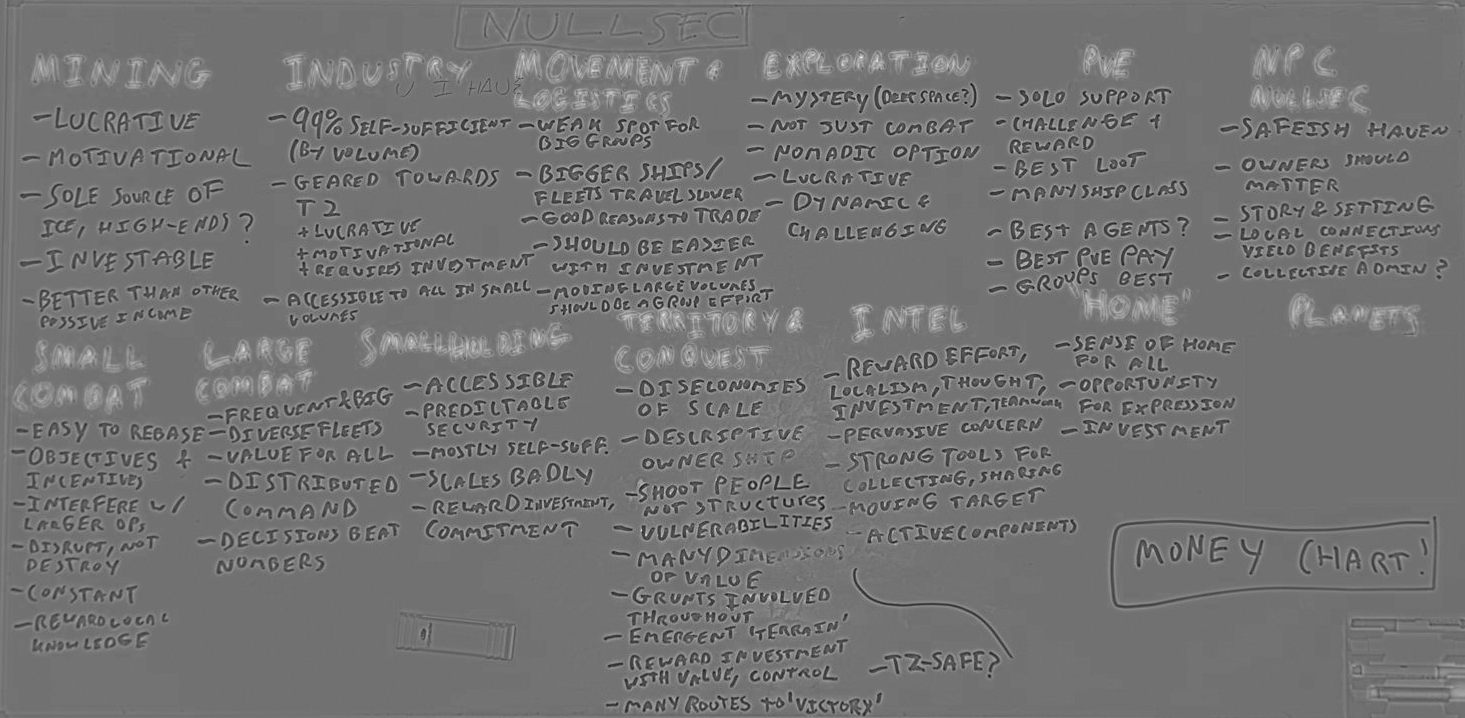 NULLSEC
MINING
- LUCRATIVE
- MOTIVATIONAL
- SOLE SOURCE OF
ICE, HIGH-ENDS?
- INVESTABLE
- BETTER THAN OTHER
PASSIVE INCOME
INDUSTRY
U I HAVE
- 99% SELF-SUFFICIENT
(BY VOLUME)
- GEARED TOWARDS
T2
+ LUCRATIVE
+ MOTIVATIONAL
+ REQUIRES INVESTMENT
- ACCESSIBLE TO ALL IN SMALL
VOLUMES
MOVEMENT &
LOGISTICS
- WEAK SPOT FOR
BIG GROUPS
- BIGGER SHIPS/
FLEETS TRAVEL SLOWER
- GOOD REASONS TO TRADE
- SHOULD BE EASIER
WITH INVESTMENT
- MOVING LARGE VOLUMES
SHOULD BE A GROUP EFFORT
EXPLORATION
- MYSTERY (DEEP SPACE?)
- NOT JUST COMBAT
- NOMADIC OPTION
- LUCRATIVE
- DYNAMIC &
CHALLENGING
PVE
- SOLO SUPPORT
- CHALLENGE +
REWARD
- BEST LOOT
- MANY SHIP CLASS
- BEST AGENTS?
- BEST PVE PAY
- GROUPS BEST
NPC
NULLSEC
- SAFEISH HAVEN
- OWNERS SHOULD
MATTER
- STORY & SETTING
- LOCAL CONNECTIONS
YIELD BENEFITS
- COLLECTIVE ADMIN?
SMALL
COMBAT
- EASY TO REBASE
- OBJECTIVES +
INCENTIVES
- INTERFERE W/
LARGER OPS
- DISRUPT, NOT
DESTROY
- CONSTANT
- REWARD LOCAL
KNOWLEDGE
LARGE
COMBAT
- FREQUENT & BIG
- DIVERSE FLEETS
- VALUE FOR ALL
- DISTRIBUTED
COMMAND
- DECISIONS BEAT
NUMBERS
SMALLHOLDING
- ACCESSIBLE
- PREDICTABLE
SECURITY
- MOSTLY SELF-SUFF.
- SCALES BADLY
- REWARD INVESTMENT,
COMMITMENT
TERRITORY &
CONQUEST
- DISECONOMIES
OF SCALE
- DESCRIPTIVE
OWNERSHIP
- SHOOT PEOPLE
NOT STRUCTURES
- VULNERABILITIES
- MANY DIMENSIONS
OF VALUE
- GRUNTS INVOLVED
THROUGHOUT
- EMERGENT 'TERRAIN'
- REWARD INVESTMENT
WITH VALUE, CONTROL
- MANY ROUTES TO 'VICTORY'
INTEL
- REWARD EFFORT,
LOCALISM, THOUGHT,
INVESTMENT, TEAMWORK
- PERVASIVE CONCERN
- STRONG TOOLS FOR
COLLECTING, SHARING
- MOVING TARGET
- ACTIVE COMPONENTS
- TZ-SAFE?
"HOME"
- SENSE OF HOME
FOR ALL
- OPPORTUNITY
FOR EXPRESSION
- INVESTMENT
PLANETS
MONEY CHART!